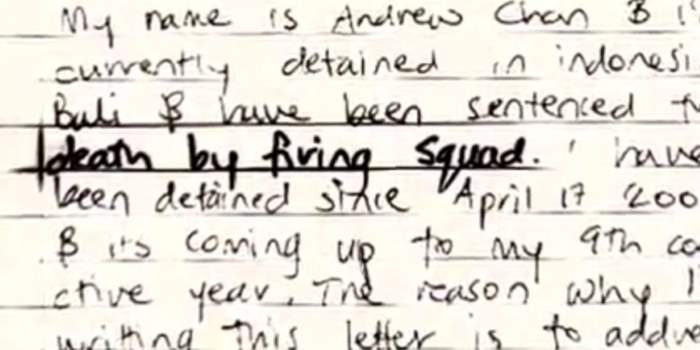 My name is Andrew Chan & I
currently detained in indonesi
Bali & have been sentenced t
death by firing Squad. I have
been detained since April 17 200
& its coming up to my 9th co
ctive year. The reason why I
writting this letter is to addr